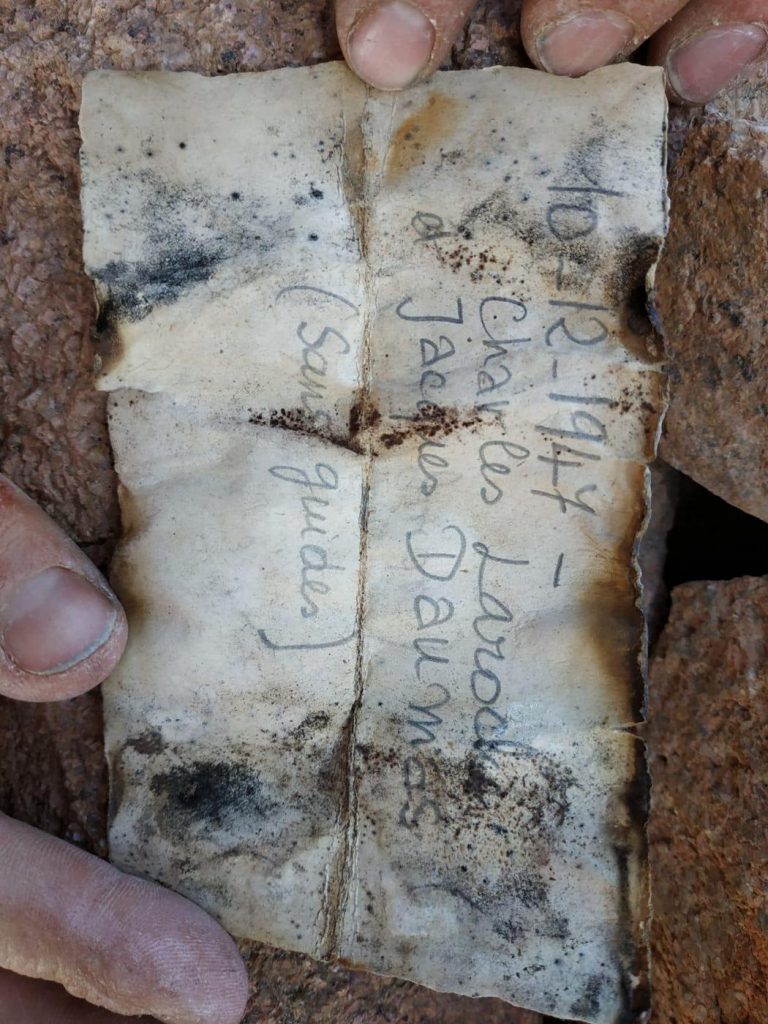 10-12-1947 –
Charles Laroche
Jacques Daumas
(Sans guides)